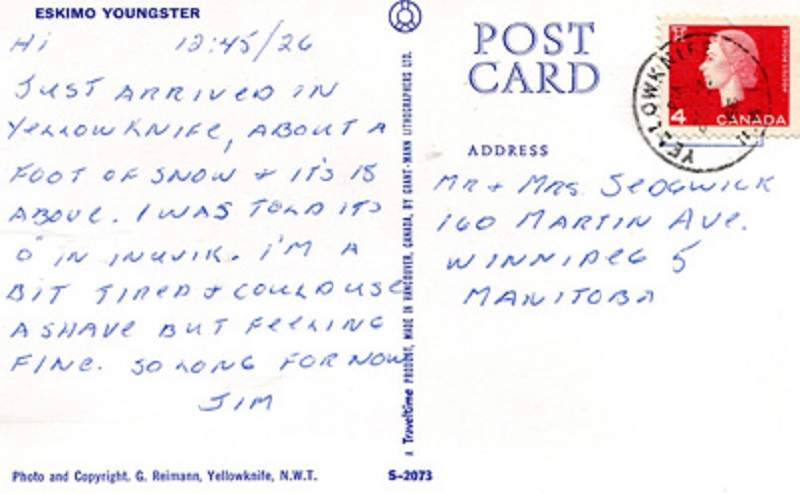 ESKIMO YOUNGSTER
Hi 12:45/26
JUST ARRIVED IN
YELLOWKNIFE, ABOUT A
FOOT OF SNOW + IT'S 15
ABOVE. I WAS TOLD ITS
0° IN INUVIK. I'M A
BIT TIRED + COULD USE
A SHAVE BUT FEELING
FINE. SO LONG FOR NOW
JIM
Photo and Copyright, G. Reimann, Yellowknife, N.W.T.
A Traveltime PRODUCT, MADE IN VANCOUVER, CANADA, BY GRANT-MANN LITHOGRAPHERS LTD.
S-2073
POST
CARD
YELLOWKNIFE
4 CANADA
POSTES POSTAGE
ADDRESS
MR + MRS. SEDGWICK
160 MARTIN AVE.
WINNIPEG 5
MANITOBA